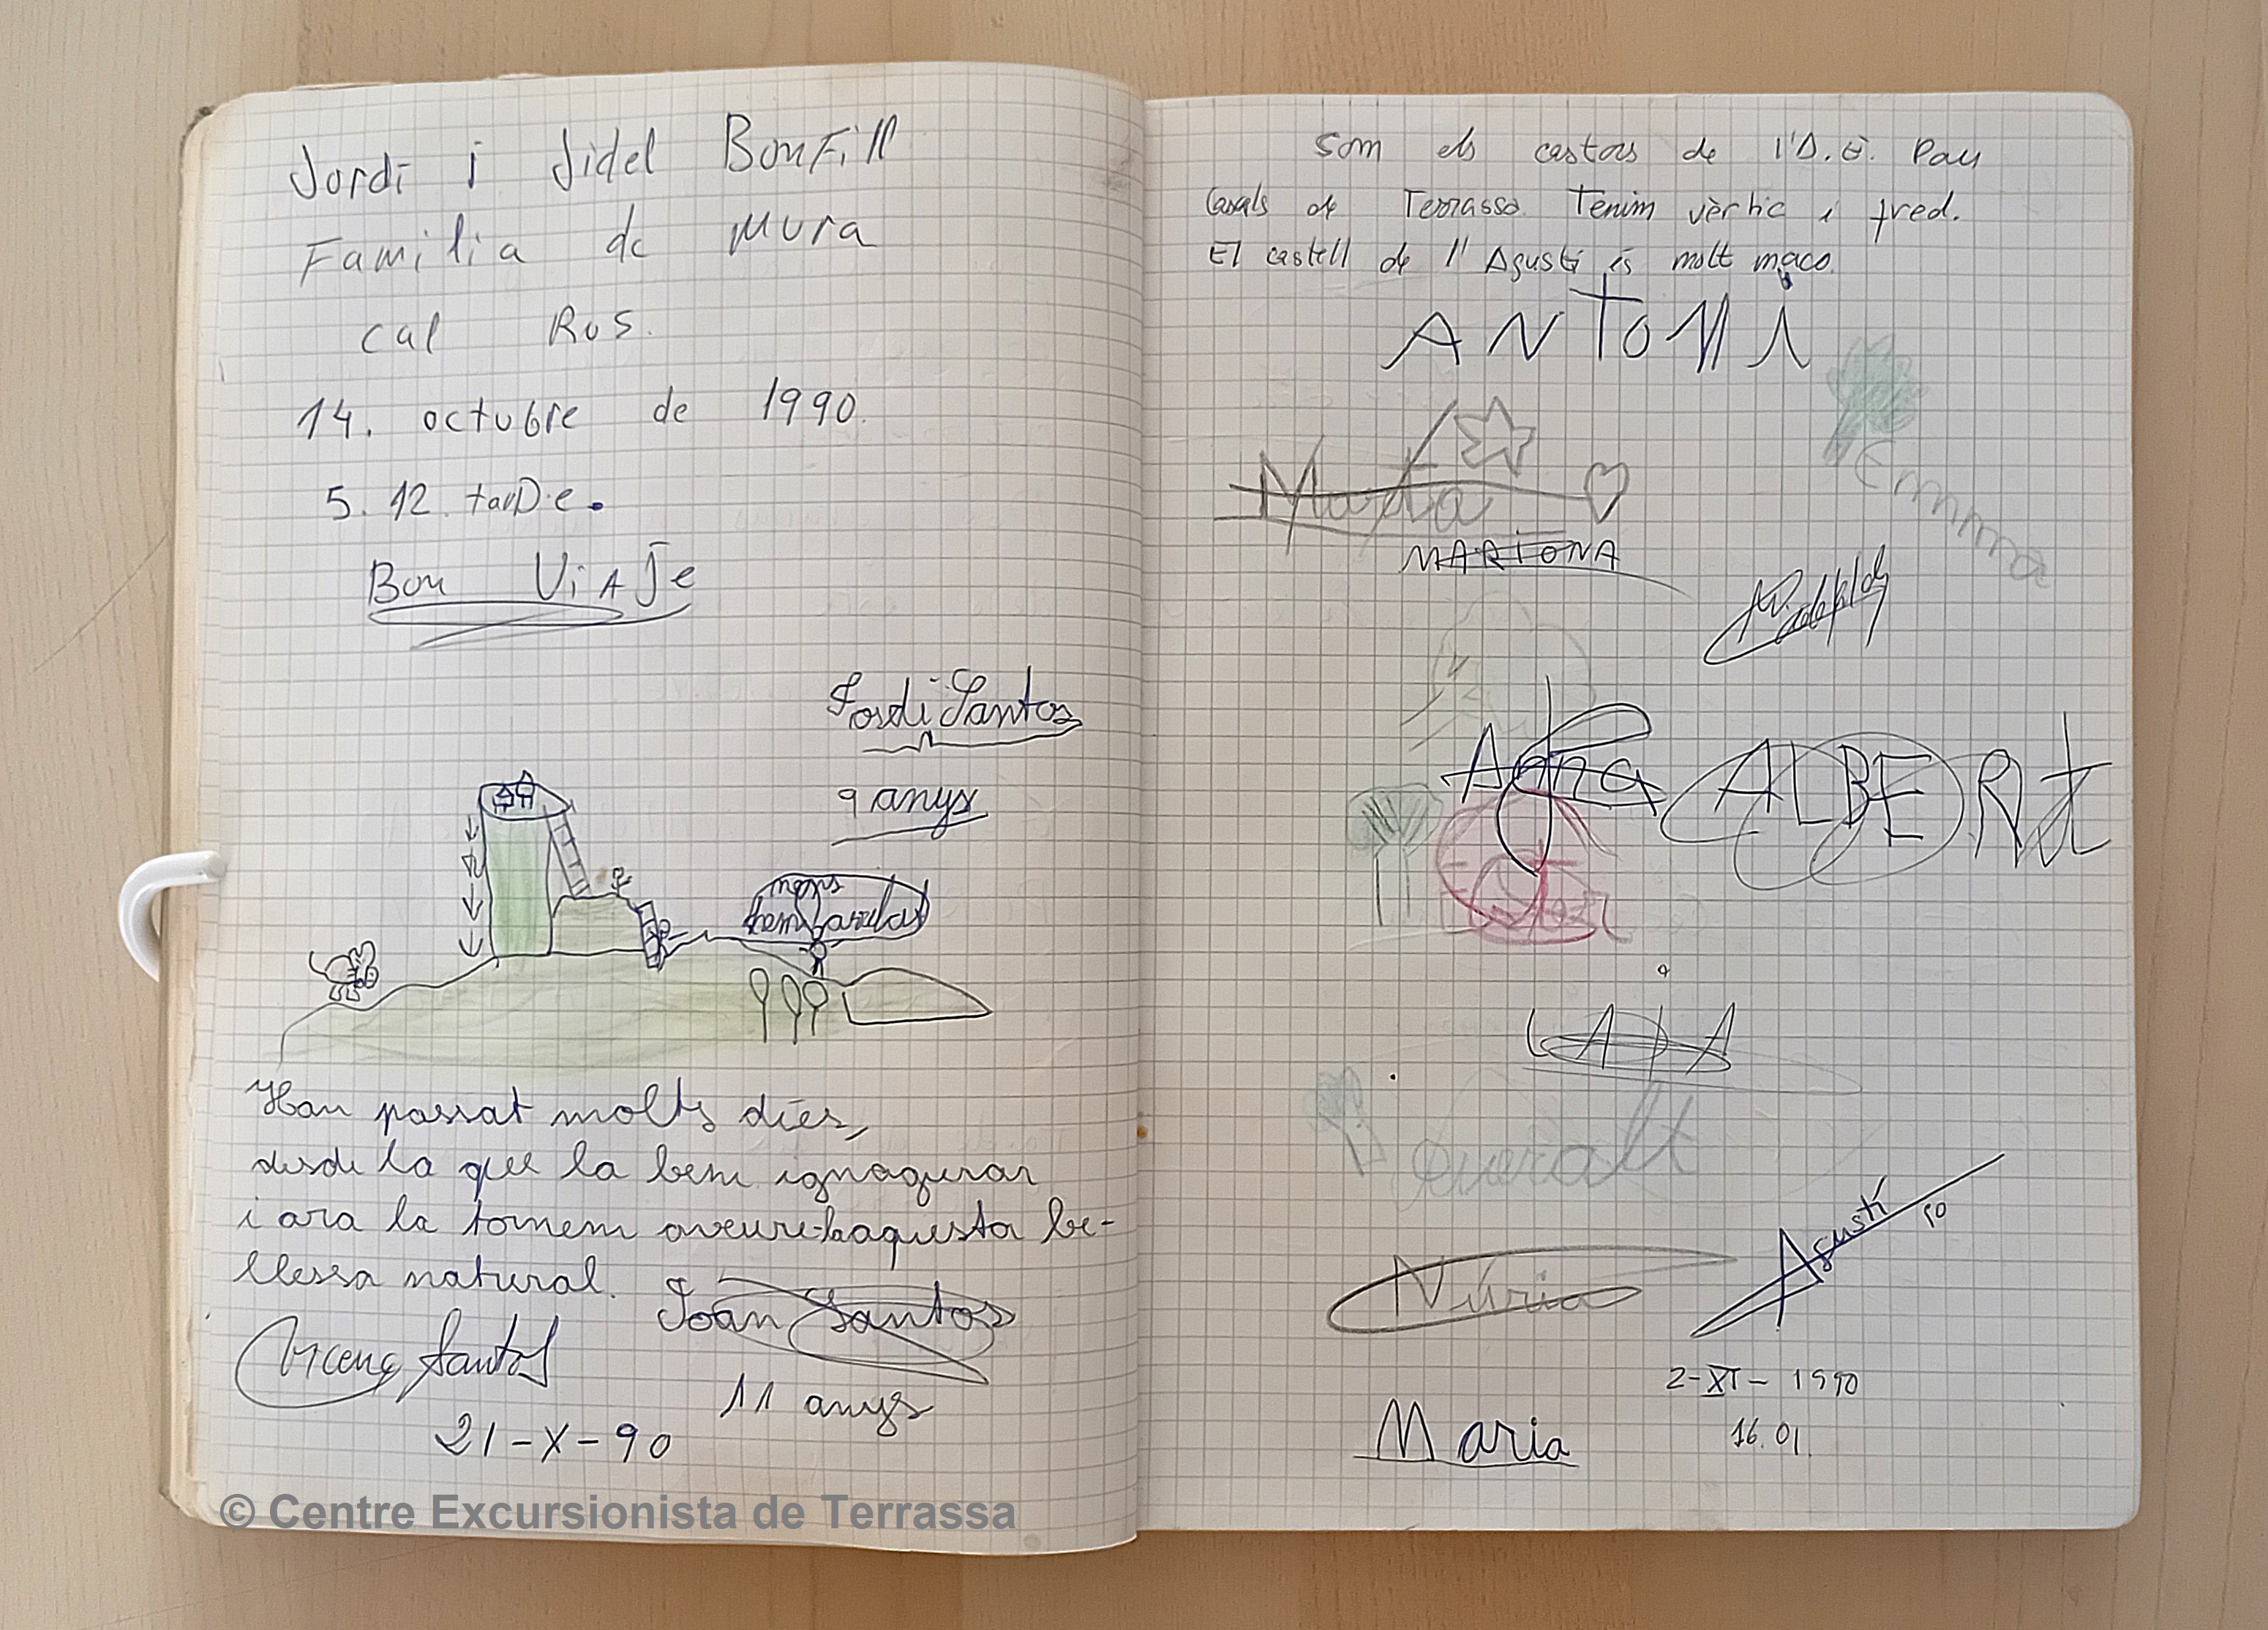 Jordi i Fidel BonFill
Familia de Mura
cal Rus.
14. octubre de 1990.
5. 12. tarDe.
Bon ViAJe
Jordi Santos
9 anys
Han passat molts dies,
desde la que la bem ignagurar
i ara la tornem aveure haquesta be-
llessa natural.
Joan Santos
Vicenç Santos
11 anys
21-X-90
Som els castors de l'A.E. Pau
Casals de Terrassa. Tenim vèrtic i fred.
El castell de l'Agustí és molt maco.
ANTONi
Marta
MARIONA
Emma
Anna
ALBERt
Queralt
Núria
Agustí
90
2-XI-1990
16.01.
Maria
© Centre Excursionista de Terrassa